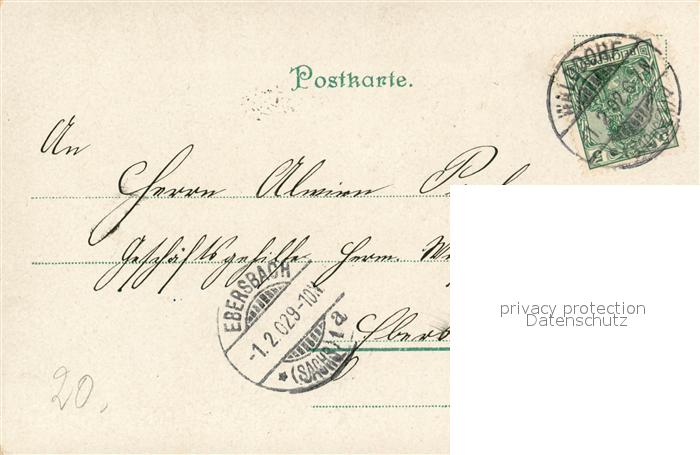 Postkarte.
An
Herrn Alwin
Geschäftsgehilfe Herm.
Ebers
EBERSBACH
-1.2.02 9-10N
* (SACHS.) 1a
20.
privacy protection
Datenschutz